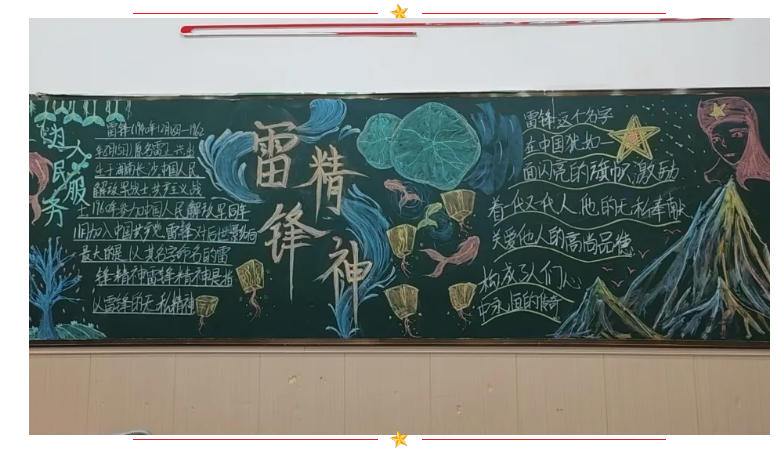 为人民服务
雷锋(1940年12月18日—1962
年8月15日)原名雷正兴出
生于湖南长沙中国人民
解放军战士共产主义战
士1960年参加中国人民解放军同年
11月加入中国共产党雷锋对后世影响
最大的是以其名字命名的雷
锋精神雷锋精神是当
以雷锋的无私精神
雷锋
精神
雷锋这个名字
在中国犹如一
面闪亮的旗帜激励
着一代又代人他的无私奉献
关爱他人的高尚品德
构成了人们心
中永恒的传奇